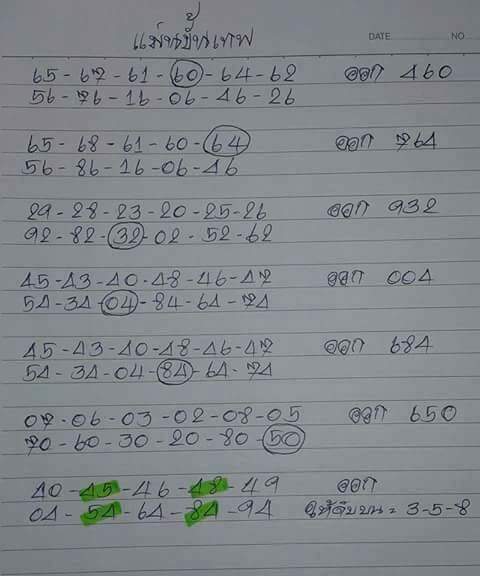 แม่นขั้นเทพ
DATE NO
65-67-61-60-64-62 ออก 460
56-76-16-06-46-26
65-68-61-60-64 ออก 764
56-86-16-06-46
29-28-23-20-25-26 ออก 932
92-82-32-02-52-62
45-43-40-48-46-47 ออก 004
54-34-04-84-64-74
45-43-40-48-46-47 ออก 684
54-34-04-84-64-74
07-06-03-02-08-05 ออก 650
70-60-30-20-80-50
40-45-46-48-49 ออก
04-54-64-84-94 ให้สิบบน = 3-5-8